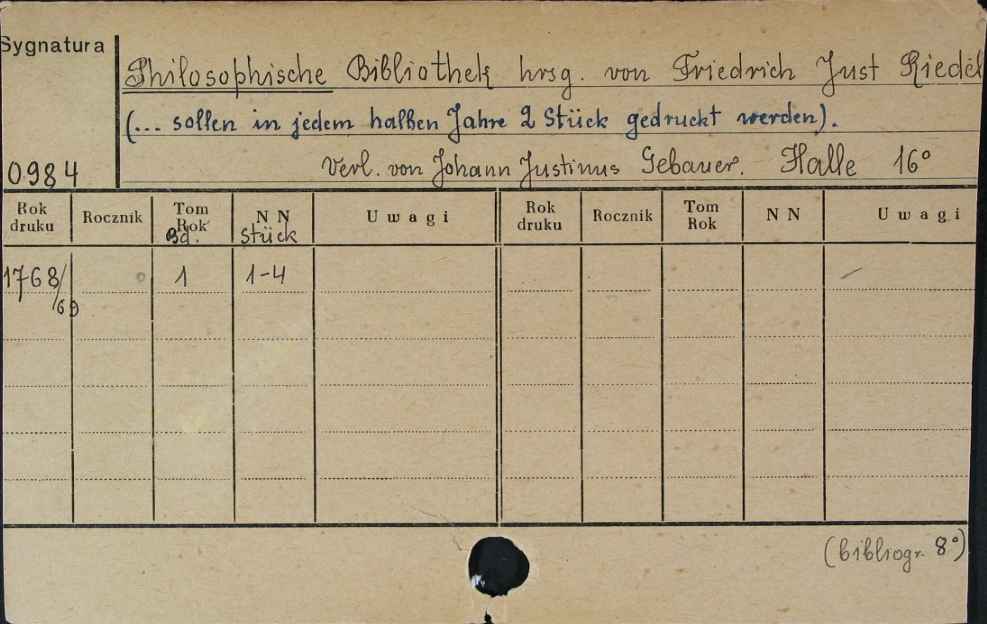 Sygnatura
Philosophische Bibliothek hrsg. von Friedrich Just Riedel
(... sollen in jedem halben Jahre 2 Stück gedruckt werden).
0984 Verl. von Johann Justinus Gebauer. Halle 16°
Rok druku Rocznik Tom Rok Bd. NN Stück Uwagi Rok druku Rocznik Tom Rok NN Uwagi
1768/69 1 1-4
(bibliogr. 8°)